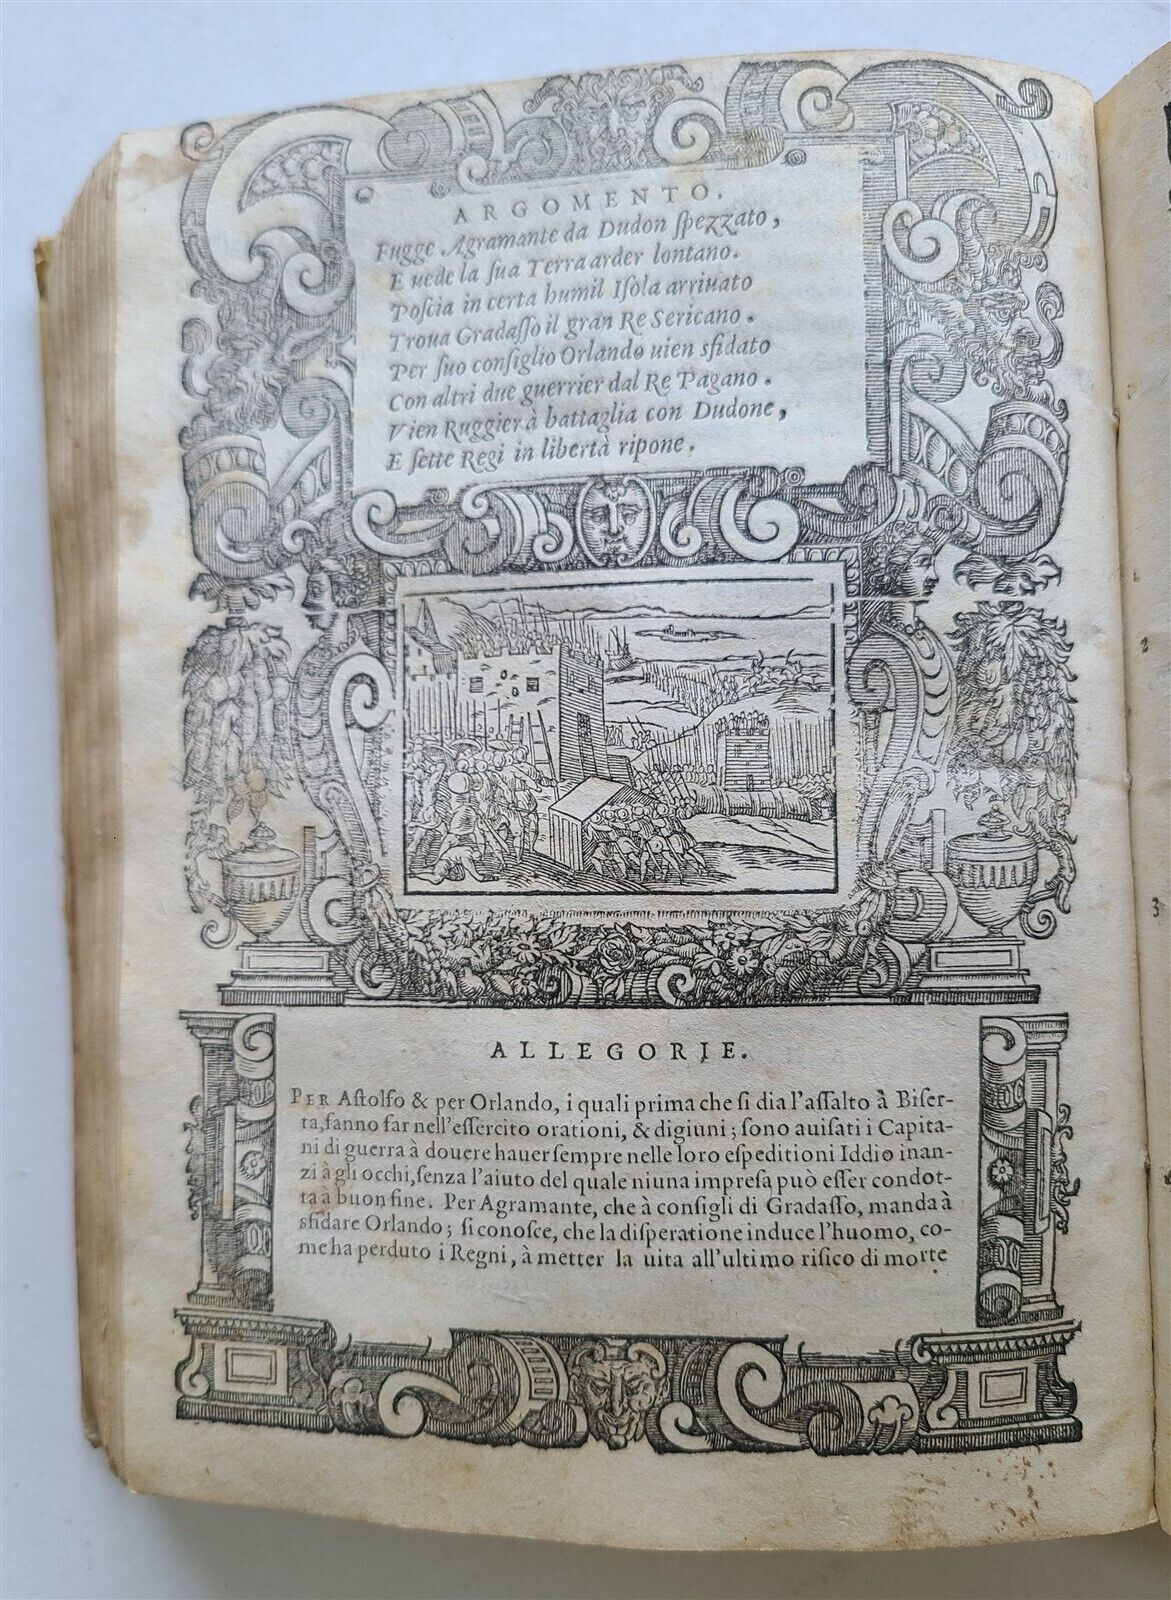 ARGOMENTO.
Fugge Agramante da Dudon ſpezzato,
E uede la ſua Terra arder lontano.
Poſcia in certa humil Iſola arriuato
Troua Gradaſſo il gran Re Sericano.
Per ſuo conſiglio Orlando uien sfidato
Con altri due guerrier dal Re Pagano.
Vien Ruggier à battaglia con Dudone,
E ſette Regi in libertà ripone.
ALLEGORIE.
PER Aſtolfo & per Orlando, i quali prima che ſi dia l'aſſalto à Biſer-
ta, fanno far nell'eſſercito orationi, & digiuni; ſono auiſati i Capita-
ni di guerra à douere hauer ſempre nelle loro eſpeditioni Iddio inan-
zi à gli occhi, ſenza l'aiuto del quale niuna impreſa può eſſer condot-
ta à buon fine. Per Agramante, che à conſigli di Gradaſſo, manda à
sfidare Orlando; ſi conoſce, che la diſperatione induce l'huomo, co-
me ha perduto i Regni, à metter la uita all'ultimo riſico di morte
2
3